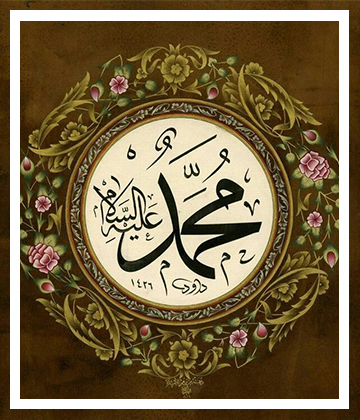 محمد
عليه السلام
داود
١٤٢٦